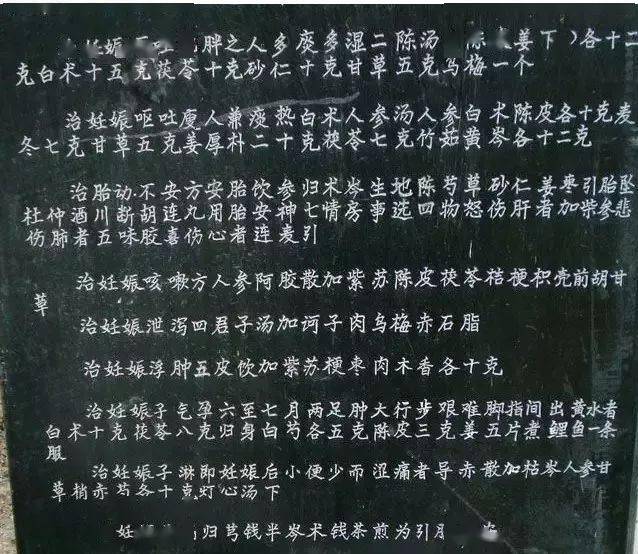 妊娠 胖之人多痰多湿二陈汤 姜下）各十二
克白术十五克茯苓十克砂仁十克甘草五克乌梅一个
治妊娠呕吐廋人兼痰热白术人参汤人参白术陈皮各十克麦
冬七克甘草五克姜厚朴二十克茯苓七克竹茹黄岑各十二克
治胎动不安方安胎饮参归术岑生地陈芍草砂仁姜枣引胎坠
杜仲酒川断胡连丸用胎安神七情房事选四物怒伤肝者加柴参悲
伤肺者五味胶喜伤心者连麦引
治妊娠咳嗽方人参阿胶散加紫苏陈皮茯苓桔梗积壳前胡甘
草
治妊娠泄泻四君子汤加诃子肉乌梅赤石脂
治妊娠浮肿五皮饮加紫苏梗枣肉木香各十克
治妊娠子气孕六至七月两足肿大行步艰难脚指间出黄水者
白术十克茯苓八克归身白芍各五克陈皮三克姜五片煮鲤鱼一条
服
治妊娠子淋即妊娠后小便少而涩痛者导赤散加枯岑人参甘
草梢赤芍各十克灯心汤下
妊 归芎钱半岑术钱茶煎为引